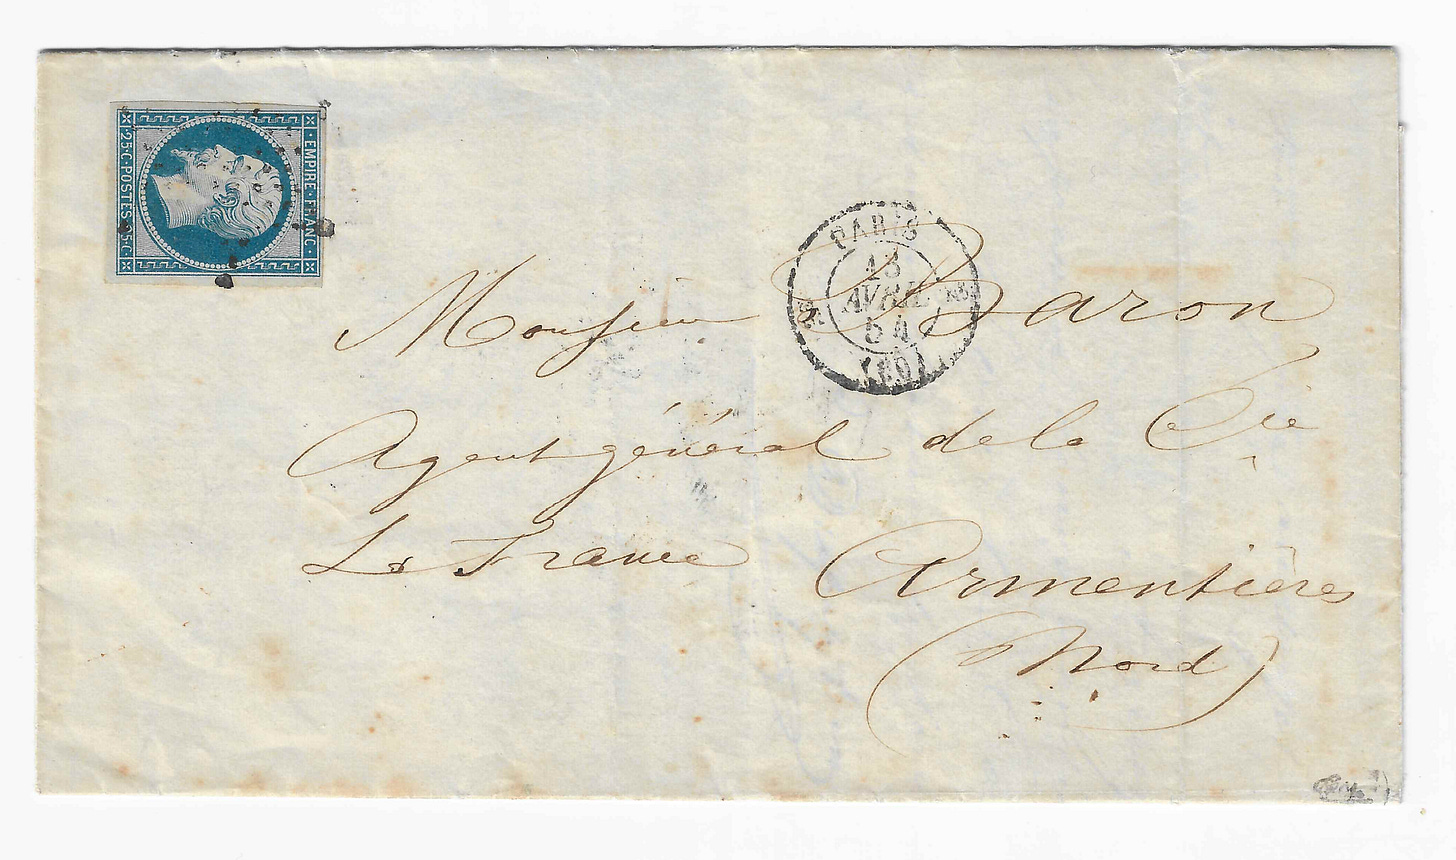 EMPIRE·FRANC·
·25·C·POSTES·25·C·
PARIS
13
AVRIL
54
(60)
Monsieur Baron
Agent général de la Cie
La France Armentières
(Nord)